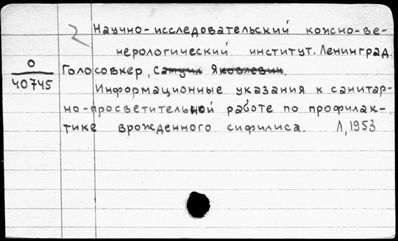 2 Научно-исследовательский кожно-ве-
нерологический институт. Ленинград
О
40745
Голосовкер, Самуил Яковлевич.
Информационные указания к санитар-
но-просветительной работе по профилак-
тике врожденного сифилиса. Л, 1953